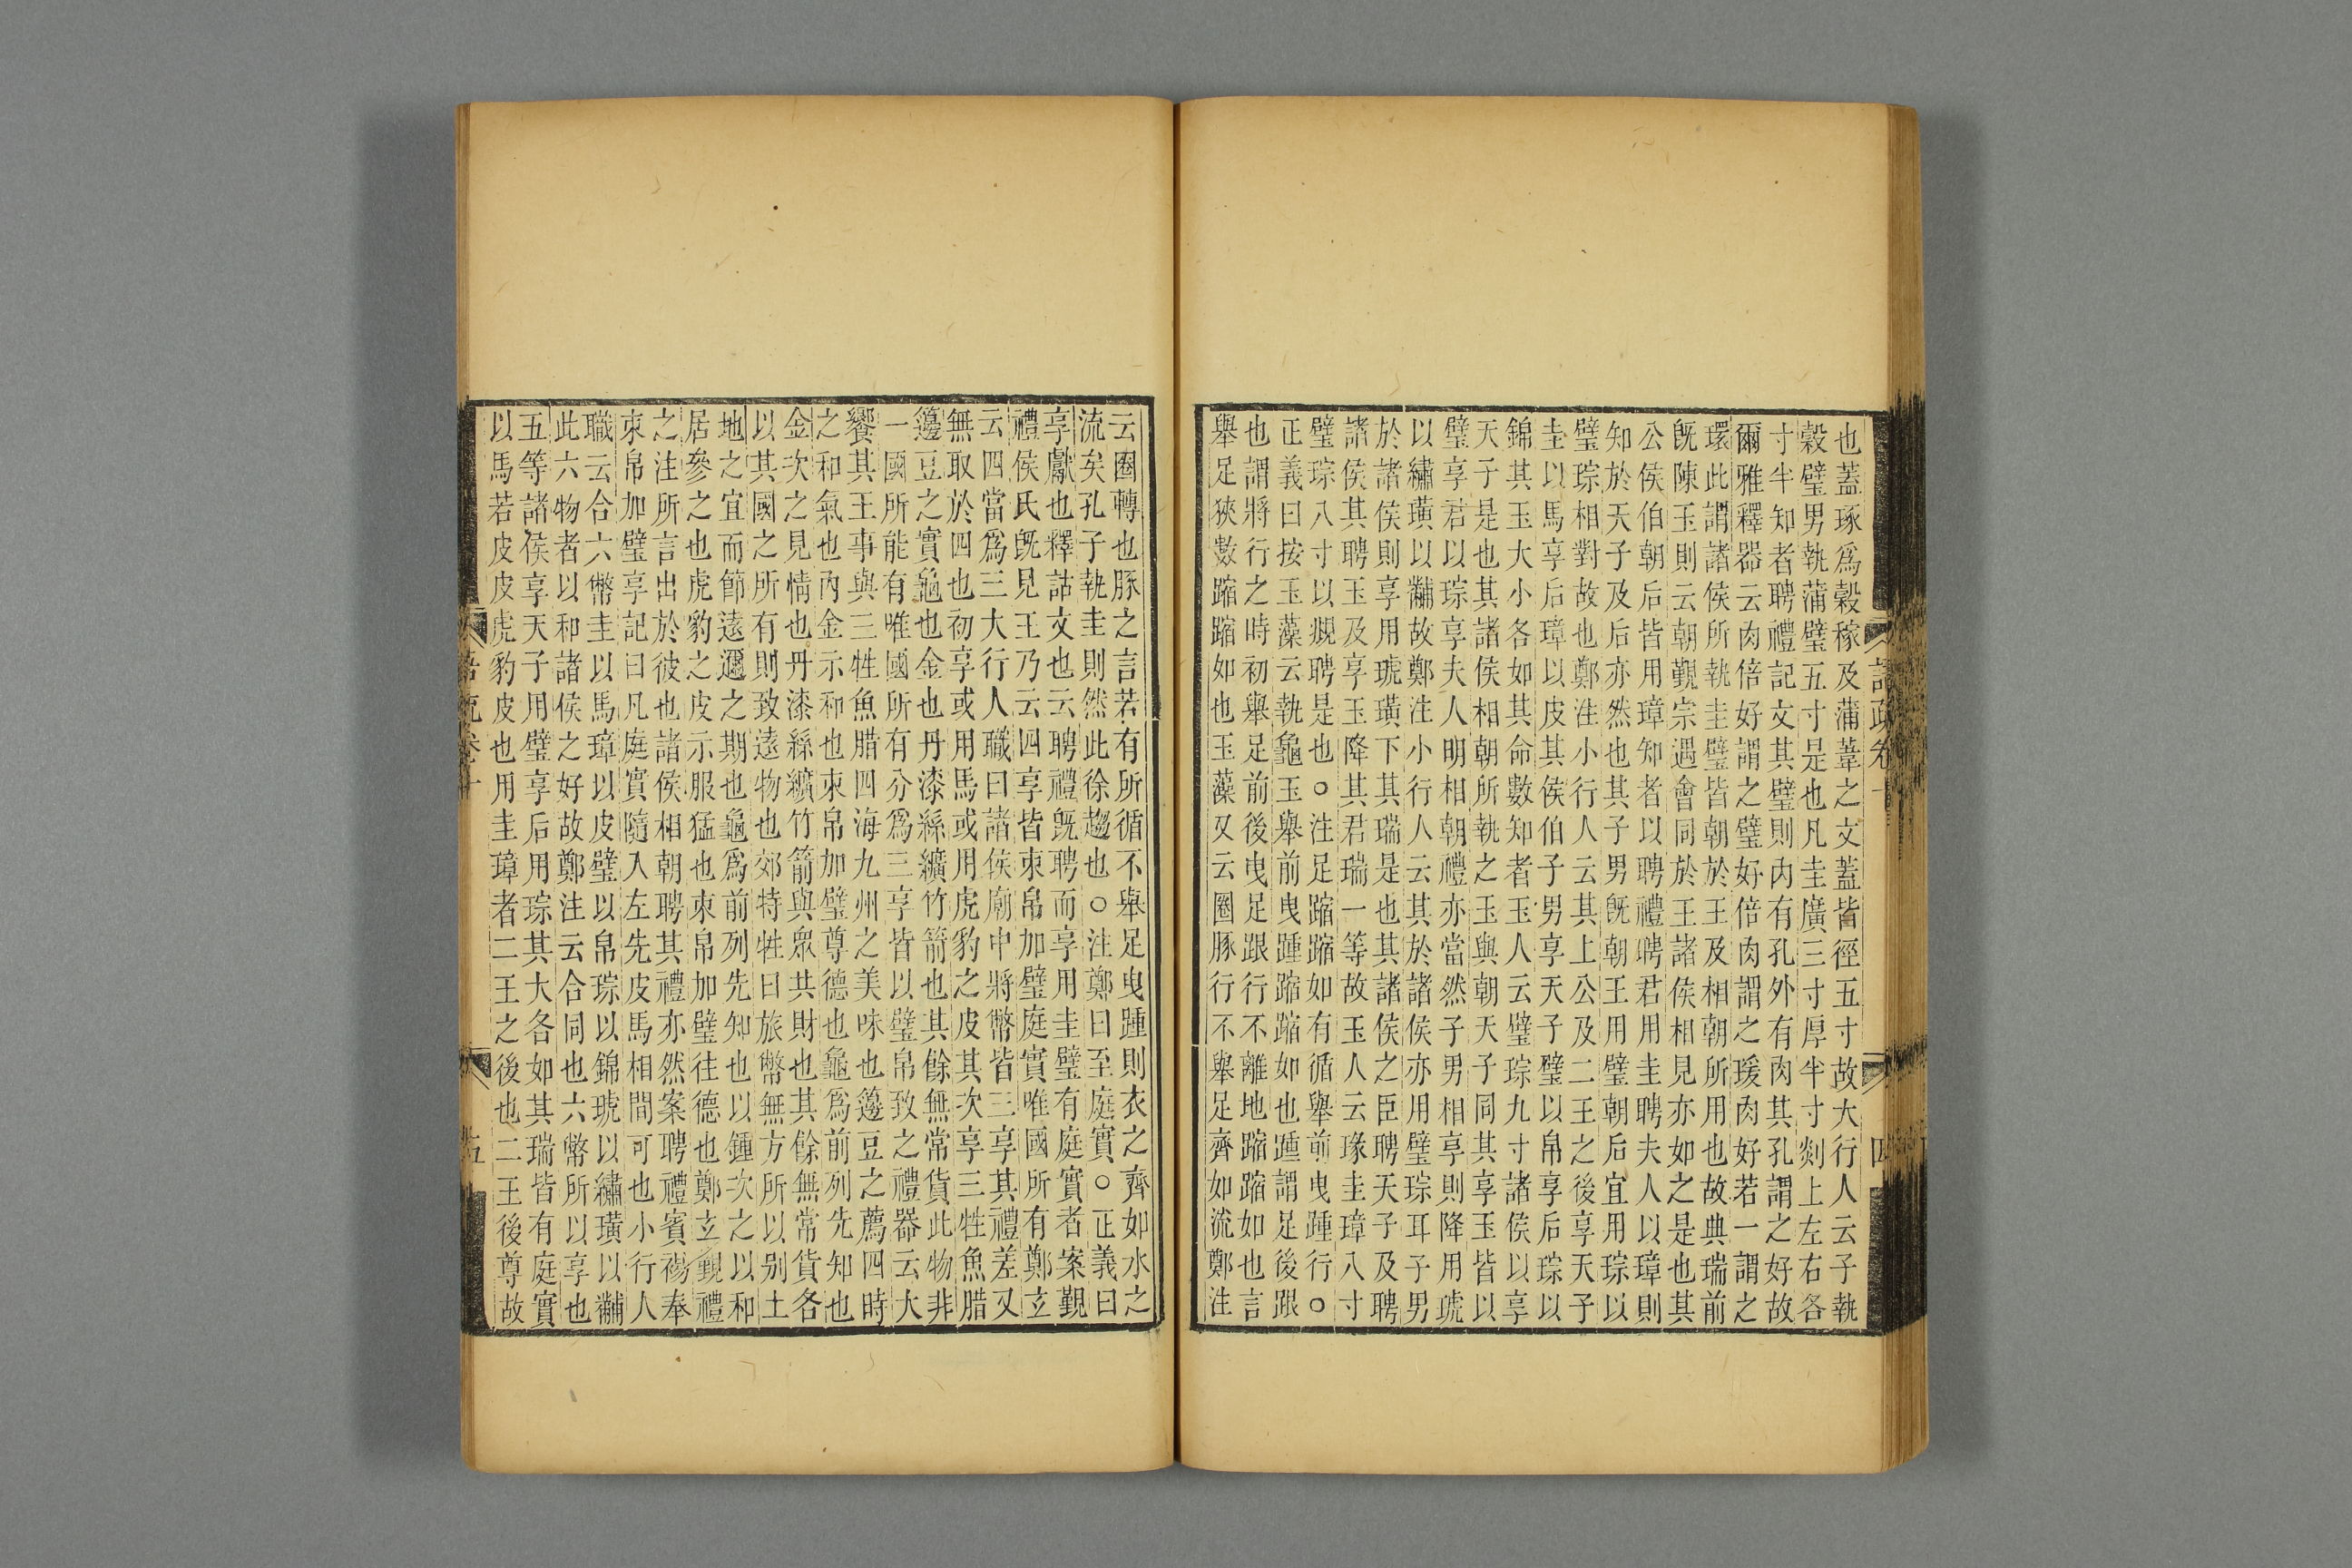 也蓋琢爲穀稼及蒲葦之文蓋皆徑五寸故大行人云子執
穀璧男執蒲璧五寸是也凡圭廣三寸厚半寸剡上左右各
寸半知者聘禮記文其璧則內有孔外有肉其孔謂之好故
爾雅釋器云肉倍好謂之璧好倍肉謂之瑗肉好若一謂之
環此謂諸侯所執圭璧皆朝於王及相朝所用也故典瑞前
旣陳玉則云朝覲宗遇會同於王諸侯相見亦如之是也其
公侯伯朝后皆用璋知者以聘禮聘君用圭聘夫人以璋則
知於天子及后亦然也其子男旣朝王用璧朝后宜用琮以
璧琮相對故也鄭注小行人云其上公及二王之後享天子
圭以馬享后璋以皮其侯伯子男享天子璧以帛享后琮以
錦其玉大小各如其命數知者玉人云璧琮九寸諸侯以享
天子是也其諸侯相朝所執之玉與朝天子同其享玉皆以
璧享君以琮享夫人明相朝禮亦當然子男相享則降用琥
以繡璜以黼故鄭注小行人云其於諸侯亦用璧琮耳子男
於諸侯則享用琥璜下其瑞是也其諸侯之臣聘天子及聘
諸侯其聘玉及享玉降其君瑞一等故玉人云瑑圭璋八寸
璧琮八寸以覜聘是也○注足蹜蹜如有循舉前曳踵行○
正義曰按玉藻云執龜玉舉前曳踵蹜蹜如也踵謂足後跟
也謂將行之時初舉足前後曳足跟行不離地蹜蹜如也言
舉足狹數蹜蹜如也玉藻又云圈豚行不舉足齊如流鄭注
云圈轉也豚之言若有所循不舉足曳踵則衣之齊如水之
流矣孔子執圭則然此徐趨也○注鄭曰至庭實○正義曰
享獻也釋詁文也云聘禮旣聘而享用圭璧有庭實者案覲
禮侯氏旣見王乃云四享皆束帛加璧庭實唯國所有鄭玄
云四當爲三大行人職曰諸侯廟中將幣皆三享其禮差又
無取於四也初享或用馬或用虎豹之皮其次享三牲魚腊
籩豆之實龜也金也丹漆絲纊竹箭也其餘無常貨此物非
一國所能有唯國所有分爲三享皆以璧帛致之禮器云大
饗其王事與三牲魚腊四海九州之美味也籩豆之薦四時
之和氣也內金示和也束帛加璧尊德也龜爲前列先知也
金次之見情也丹漆絲纊竹箭與眾共財也其餘無常貨各
以其國之所有則致遠物也郊特牲曰旅幣無方所以別土
地之宜而節遠邇之期也龜爲前列先知也以鍾次之以和
居參之也虎豹之皮示服猛也束帛加璧往德也鄭玄覲禮
之注所言出於彼也諸侯相朝聘其禮亦然案聘禮賓裼奉
束帛加璧享記曰凡庭實隨入左先皮馬相間可也小行人
職云合六幣圭以馬璋以皮璧以帛琮以錦琥以繡璜以黼
此六物者以和諸侯之好故鄭注云合同也六幣所以享也
五等諸侯享天子用璧享后用琮其大各如其瑞皆有庭實
以馬若皮皮虎豹皮也用圭璋者二王之後也二王後尊故